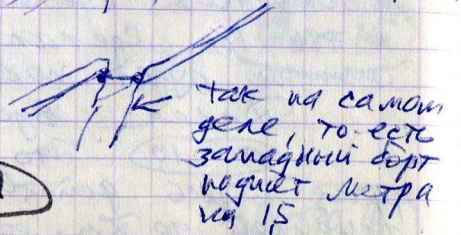 так на самом
деле, то-есть
западный борт
поднят метра
на 1,5